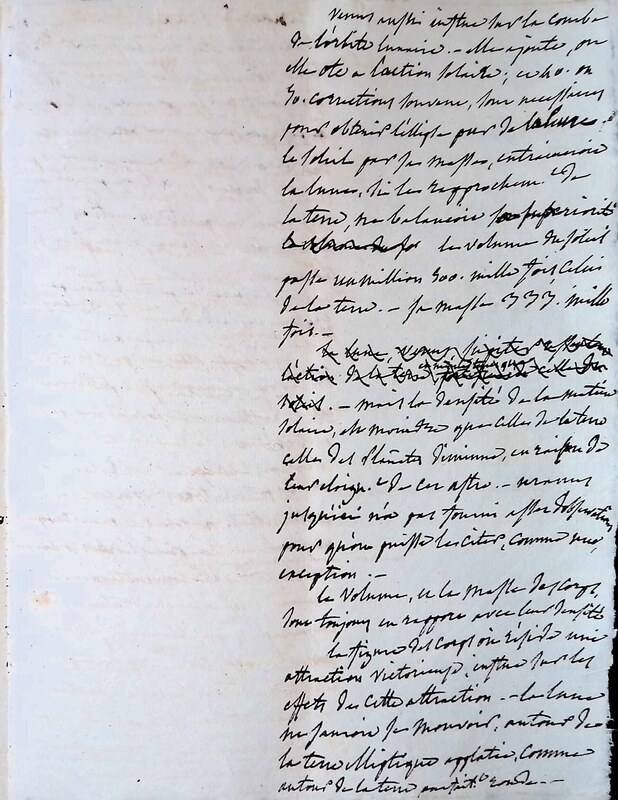 Venus aussi influe sur la courbe
de l'orbite lunaire. - elle ajoute, ou
elle ote a l'action solaire; et 40. ou
50. corrections souvent, sont necessaires
pour obtenir l'ellipse pure de la lune.
le soleil par sa masse, entraineroit
la lune, si le rapprochem.t de
la terre, ne balancoit sa superiorité
le volume du soleil
passe un million 300. mille fois celui
de la terre. - sa masse 333. mille
fois. -
la lune, venus,
l'action de la terre
. - mais la densité de la matière
solaire, est moindre que celles de la terre
celles des Planetes diminue, en raison de
leur eloign.t de cet astre. - uranus
jusqu'ici n'a pas fourni assez d'observations
pour qu'on puisse les citer, comme une
exception. -
le Volume, et la masse des corps,
sont toujours en rapport avec leur densité
la figure des corps ou réside une
attraction victorieuse, influe sur les
effets de cette attraction. - la lune
ne sauroit se mouvoir, autour de
la terre elliptique applatie, comme
autour de la terre parfait.t ronde. -